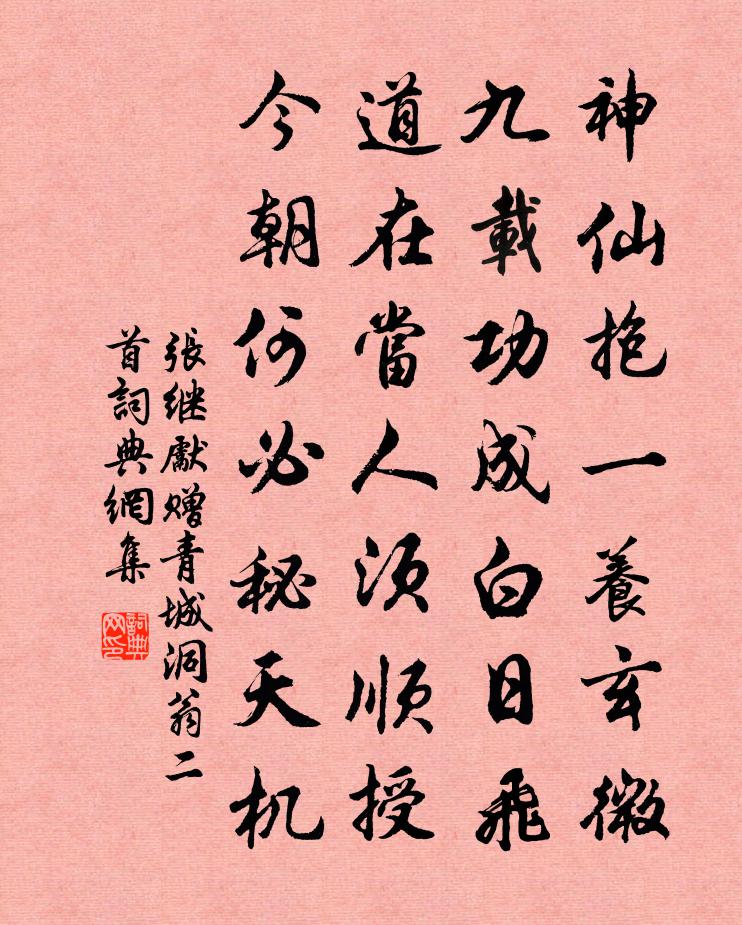 神仙抱一養玄微
九載功成白日飛
道在當人須順授
今朝何必秘天机
張继獻赠青城洞翁二
首詞典網集
詞典
网印